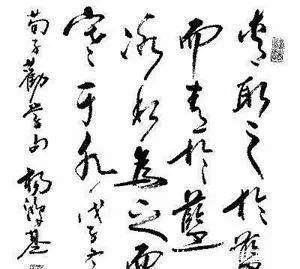 青取之於藍
而青於藍
冰水為之而
寒于水 戊子
荀子勸學句 楊鴻基